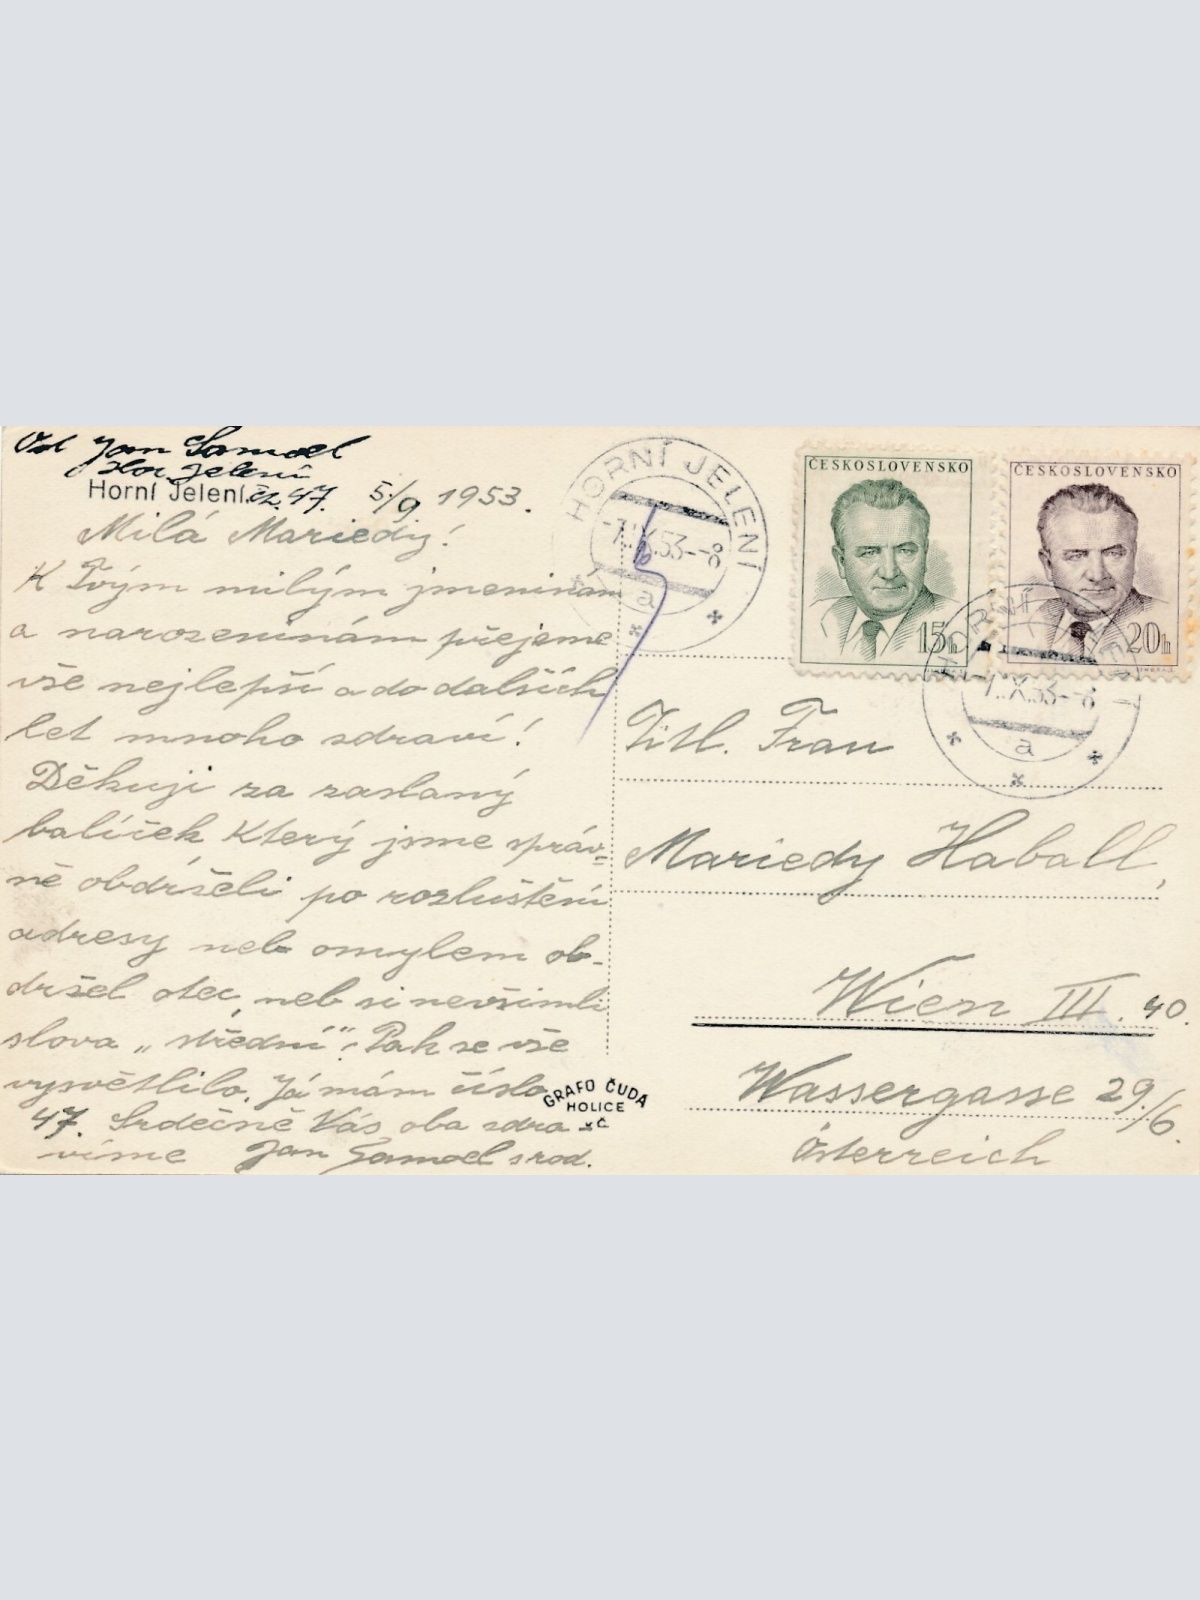 Od Jan Samoel
Hor Jelení
Horní Jelení. čí. 47. 5./9 1953.
Milá Mariedy!
K Tvým milým jmeninám
a narozeninám přejeme
vše nejlepší a do dalších
let mnoho zdraví!
Děkuji za zaslaný
balíček který jsme správ-
ně obdrželi po rozluštění
adresy neb omylem ob-
držel otec, neb si nevšimli
slova „střední“. Pak se vše
vysvětlilo. Já mám číslo
47. Srdečně Vás oba zdra
víme Jan Samoel s rod.
GRAFO ČUDA
HOLICE
HORNÍ JELENÍ
-7.IX.53--8
a
ČESKOSLOVENSKO
15h
ČESKOSLOVENSKO
20h
HORNÍ
-7.IX.53--8
a
Titl. Frau
Mariedy Haball,
Wien III. 40.
Wassergasse 29/6.
Österreich